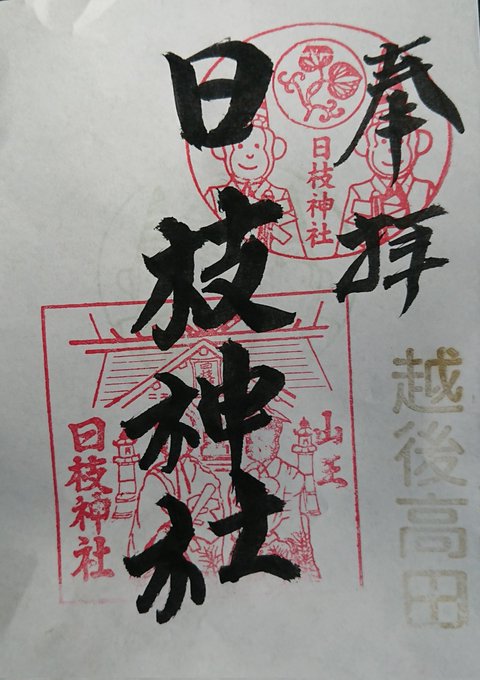 奉拝
日枝神社
越後高田
日枝神社
山王
日枝神社